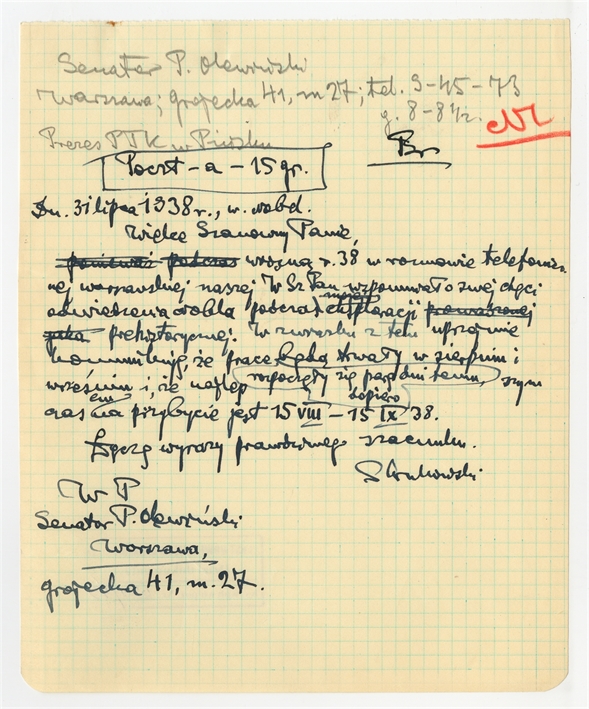 Senator P. Olewiński
Warszawa; grojecka 41, m 27; tel. 9-45-73
g. 8-8 1/2.
Prezes PTK w Pińsku
Poczt-a-15 gr.
Dn. 31 lipca 1938 r., w.
Wielce Szanowny Panie,
ponieważ podczas wiosną r. 38 w rozmowie telefonicz-
nej warszawskiej naszej W Sz Pan wspominał o swej chęci
odwiedzenia podczas mojej eksploracji prowadzonej
prehistorycznej. W związku z tem uprzejmie
komunikuję, że prace będą trwały w sierpniu i
wrześniu i, że najlep rozpoczęły się parę dni temu, szym
dopiero
czasem na przybycie jest 15 VIII – 15 IX 38.
Łączę wyrazy prawdziwego szacunku.
W P
Senator P. Olewiński
Warszawa,
grojecka 41, m. 27.